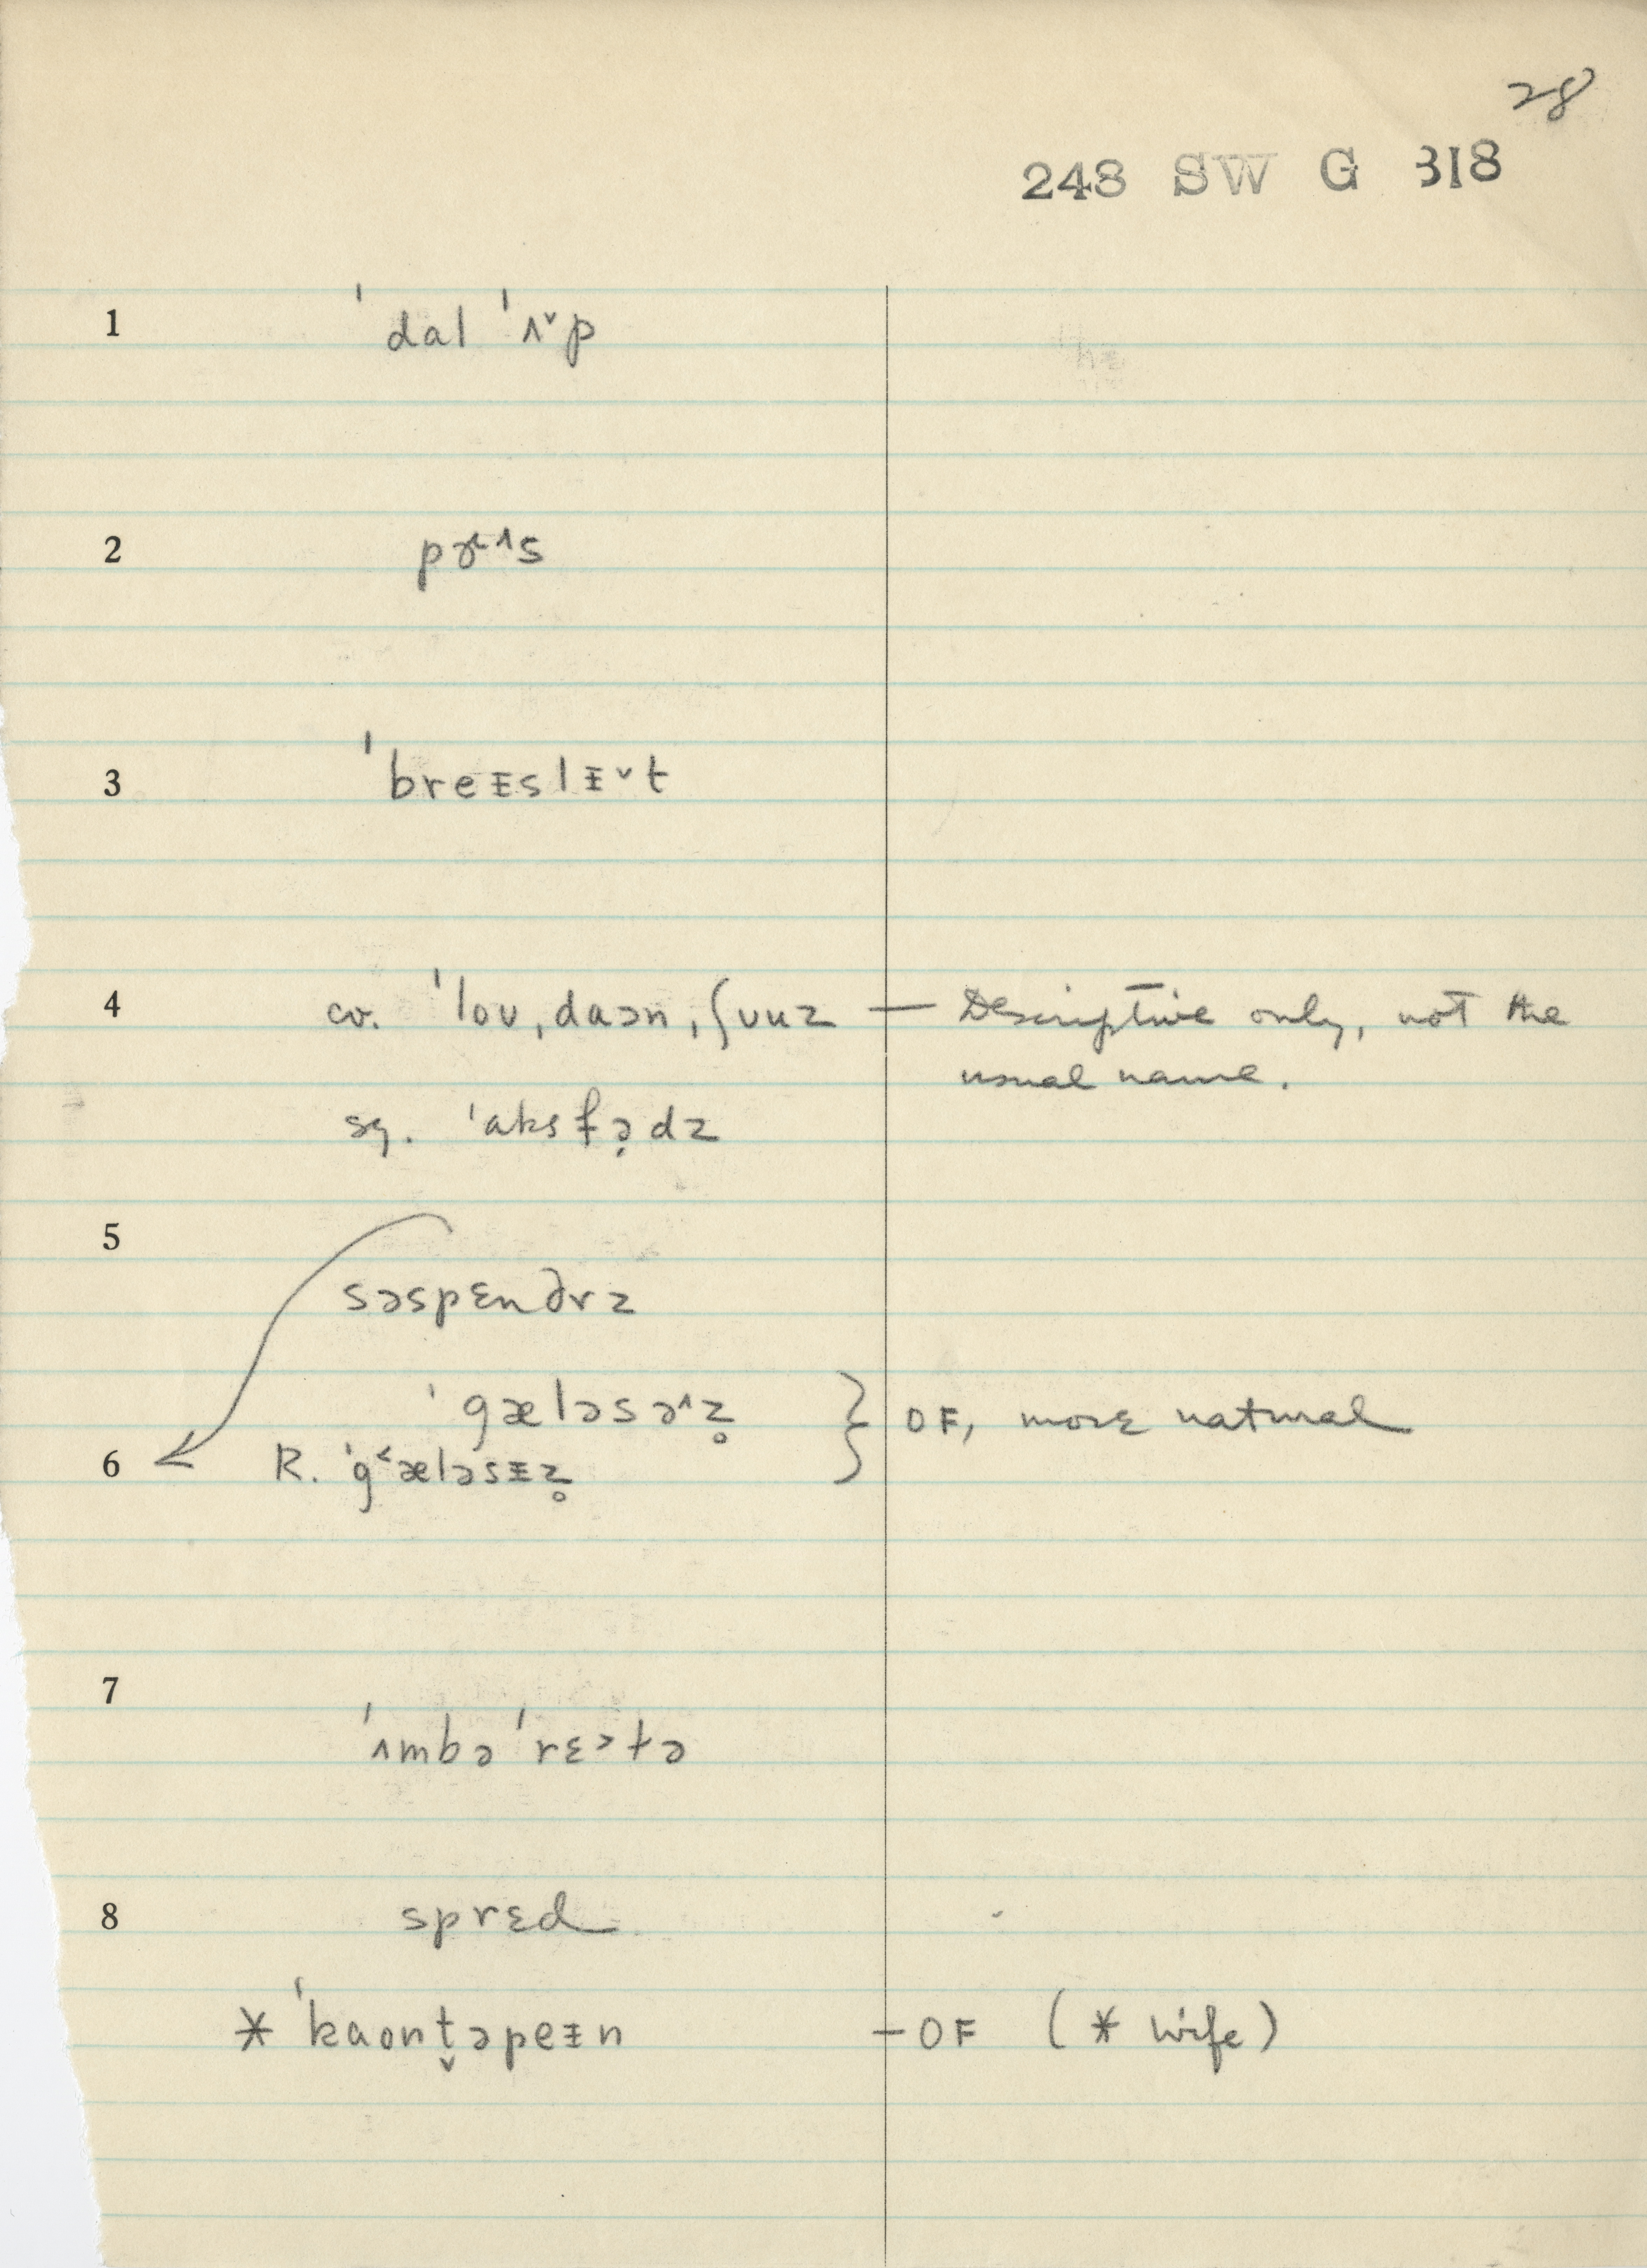 28
248 SW G 318
1 ˈdal ˈʌ˅p
2 pɚ˞^s
3 ˈbreᵻslᵻ˅t
4 cv. ˈloʊˌdaɔnˌʃʊuz — Descriptive only, not the
usual name.
sg. ˈaksfə̣dz
5
səspɛndɚz
ˈgæləsə^z̥ } OF, more natural
6 R. ˈg˂æləsᵻz̥
7
ˈʌmbəˈrɛ˃lə
8 sprɛd
* ˈkaont̬əpeᵻn — OF (* wife)